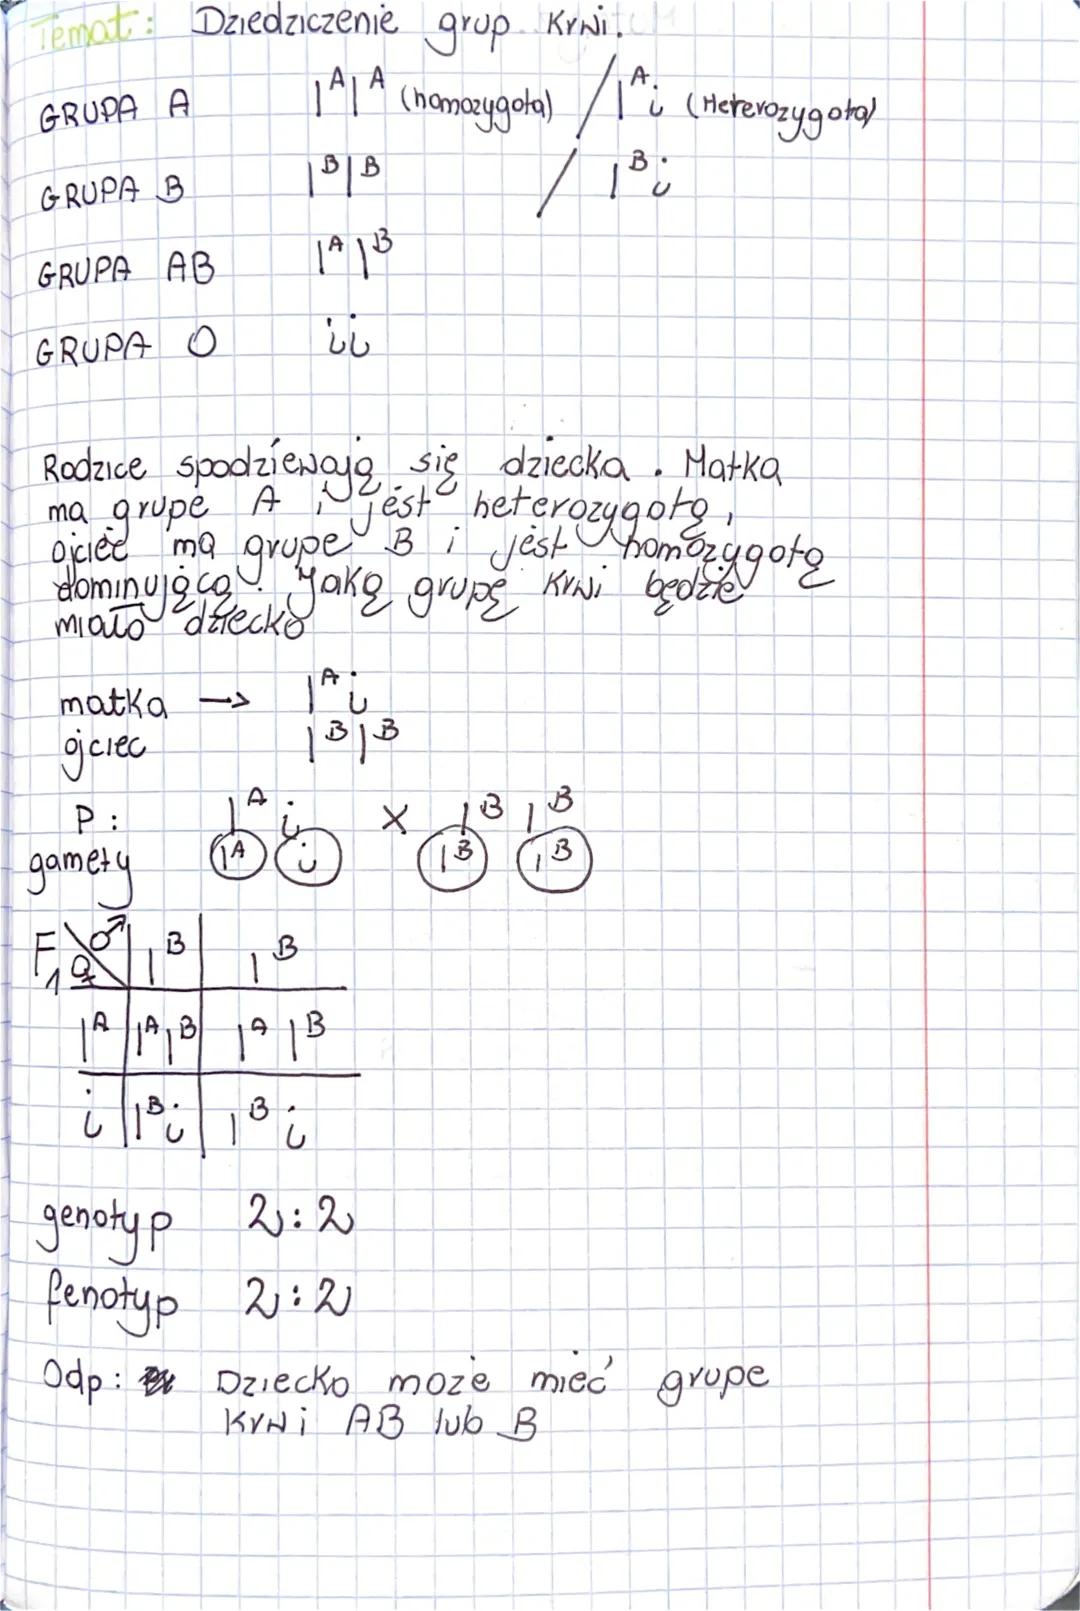 Temat: Dziedziczenie grup krwi.
GRUPA A IᴬIᴬ (homozygota) / Iᴬi (Heterozygota)
GRUPA B IᴮIᴮ / Iᴮi
GRUPA AB IᴬIᴮ
GRUPA O ii
Rodzice spodziewają się dziecka. Matka
ma grupe A i jest heterozygotą,
ojciec ma grupe B i jest homozygotą
dominującą. Jaką grupę krwi będzie
miało dziecko
matka -> Iᴬi
ojciec IᴮIᴮ
P: Iᴬ i x Iᴮ Iᴮ
gamety Iᴬ i Iᴮ Iᴮ
F₁ ♀ ♂ Iᴮ Iᴮ
Iᴬ IᴬIᴮ IᴬIᴮ
i Iᴮi Iᴮi
genotyp 2:2
fenotyp 2:2
Odp: Dziecko może mieć grupe
krwi AB lub B